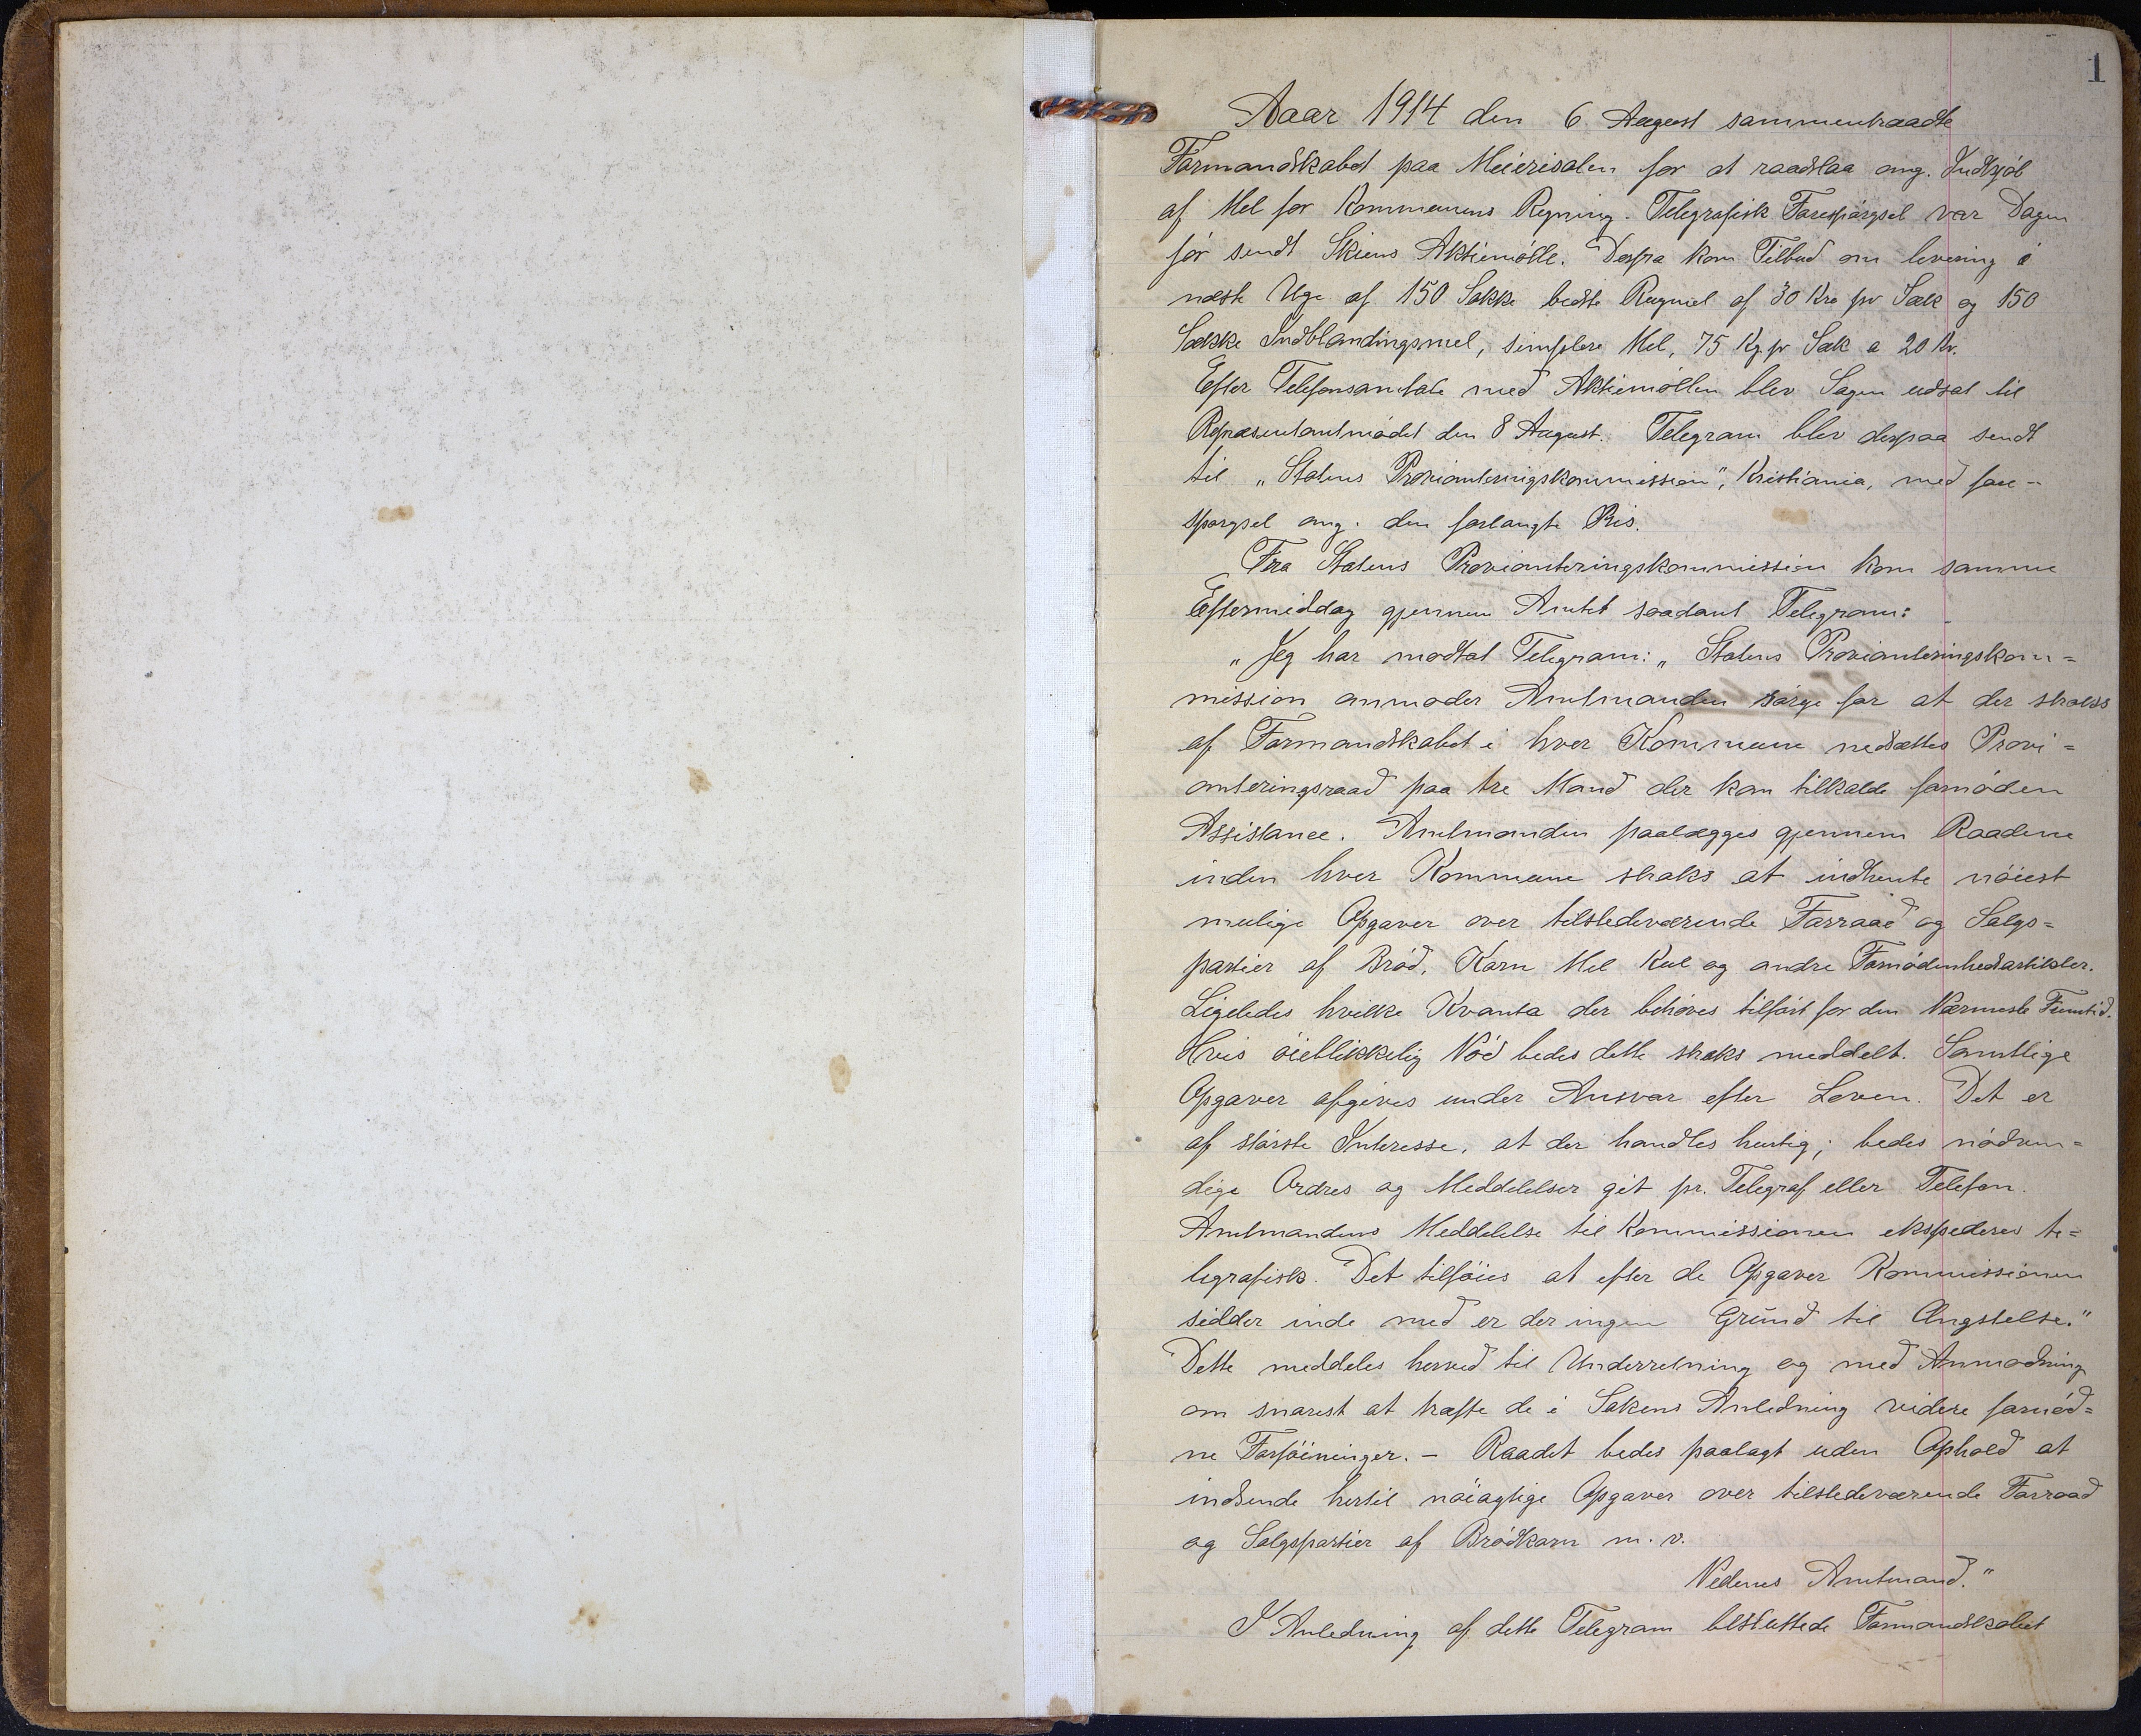 1
Aaar 1914 den 6 August sammentraadte
Formandskabet paa Meierisalen for at raadslaa ang. Indkjöb
af Mel for Kommunens Regning. Telegrafisk Forespörgsel var Dagen
för sendt Skiens Aktiemölle. Derfra kom Tilbud om levering i
næste Uge af 150 Sække bedste Rugmel af 30 Kro pr Sæk og 150
Sække Indblandingsmel, simplere Mel, 75 Kg. pr Sæk a 20 Kr.
Efter Telefonsamtale med Aktiemöllen blev Sagen udsat til
Repræsentantmödet den 8 August. Telegram blev derpaa sendt
til „Statens Provianteringskommission", Kristiania, med fore-
spørgsel ang. den forlangte Pris.
Fra Statens Provianteringskommission kom samme
Eftermiddag gjennem Amtet saadant Telegram:
„Jeg har modtat Telegram: „Statens Provianteringskom=
mission anmoder Amtmanden sörge for at der straks
af Formandskabet i hver Kommune nedsættes Provi=
anteringsraad paa tre Mand der kan tilkalde fornöden
Assistance. Amtmanden paalægges gjennem Raadene
inden hver Kommune straks at indhente nöiest
mulige Opgaver over tilstedeværende Forraad og Salgs=
partier af Bröd, Korn Mel Kul og andre Fornödenhedsartikler.
Ligeledes hvilke Kvanta der behöves tilfört for den Nærmeste Fremtid.
Hvis öieblikkelig Nöd bedes dette straks meddelt. Samtlige
Opgaver afgives under Ansvar efter Loven. Det er
af störste Interesse, at der handles hurtig; bedes nödven=
dige Ordres og Meddelelser git pr. Telegraf eller Telefon.
Amtmandens Meddelelse til Kommissionen ekspederes te=
legrafisk. Det tilföies at efter de Opgaver Kommissionen
sidder inde med er der ingen Grund til Ængstelse."
Dette meddeles herved til Underretning og med Anmodning
om snarest at træffe de i Sakens Anledning videre fornöd=
ne Forföininger. – Raadet bedes paalagt uden Ophold at
indsende hertil nöiagtige Opgaver over tilstedeværende Forraad
og Salgspartier af Brödkorn m. v.
Nedenes Amtmand."
I Anledning af dette Telegram besluttede Formandskabet